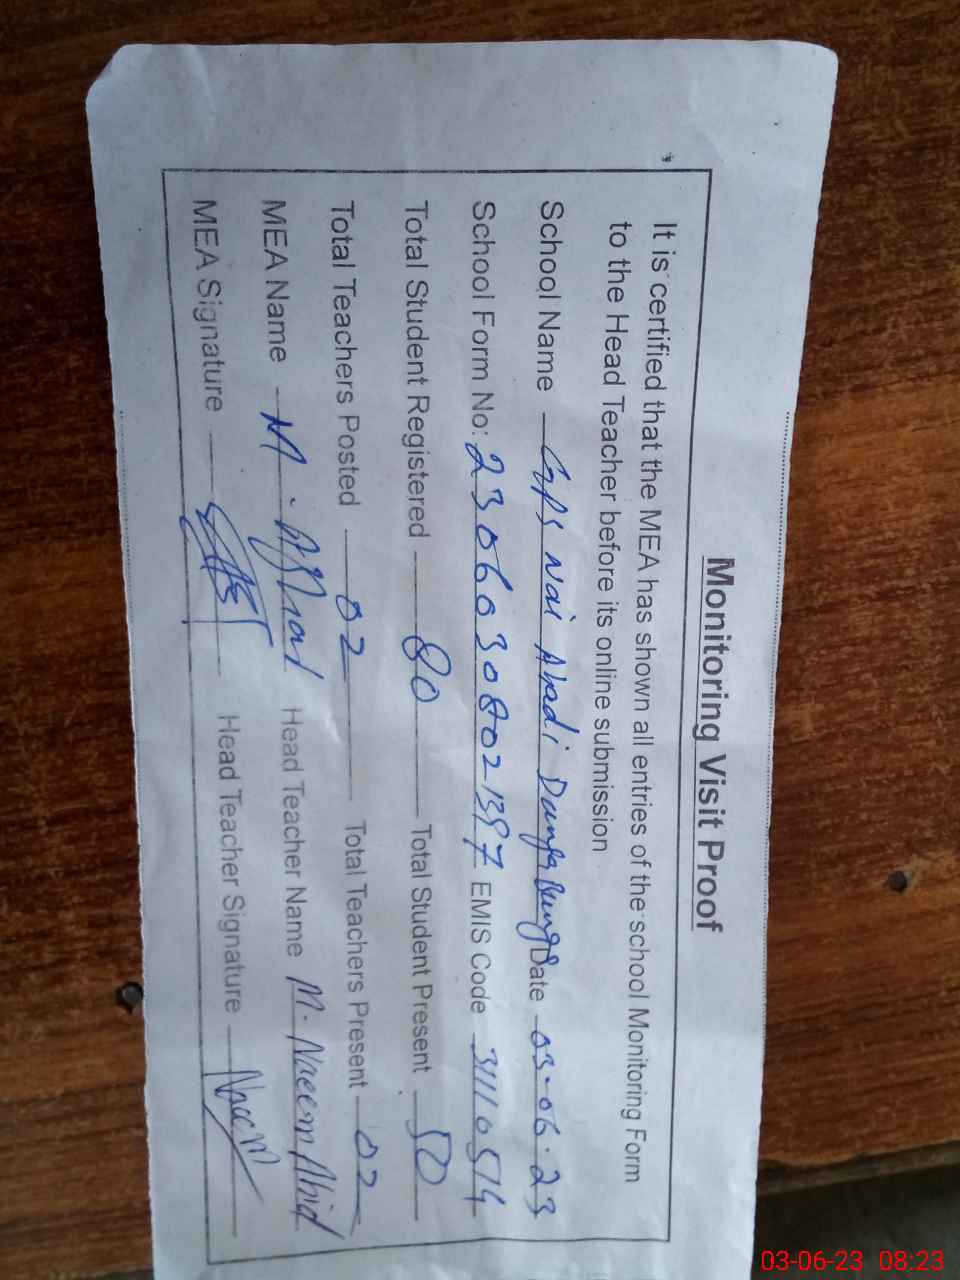 Monitoring Visit Proof
It is certified that the MEA has shown all entries of the school Monitoring Form
to the Head Teacher before its online submission.
School Name GPS Nai Abadi Dunga Bunga Date 03-06-23
School Form No: 23060308021397 EMIS Code 31110514
Total Student Registered 80 Total Student Present 50
Total Teachers Posted 02 Total Teachers Present 02
MEA Name M. Afshal Head Teacher Name M. Naeem Abid
MEA Signature Head Teacher Signature Naeem
03-06-23 08:23